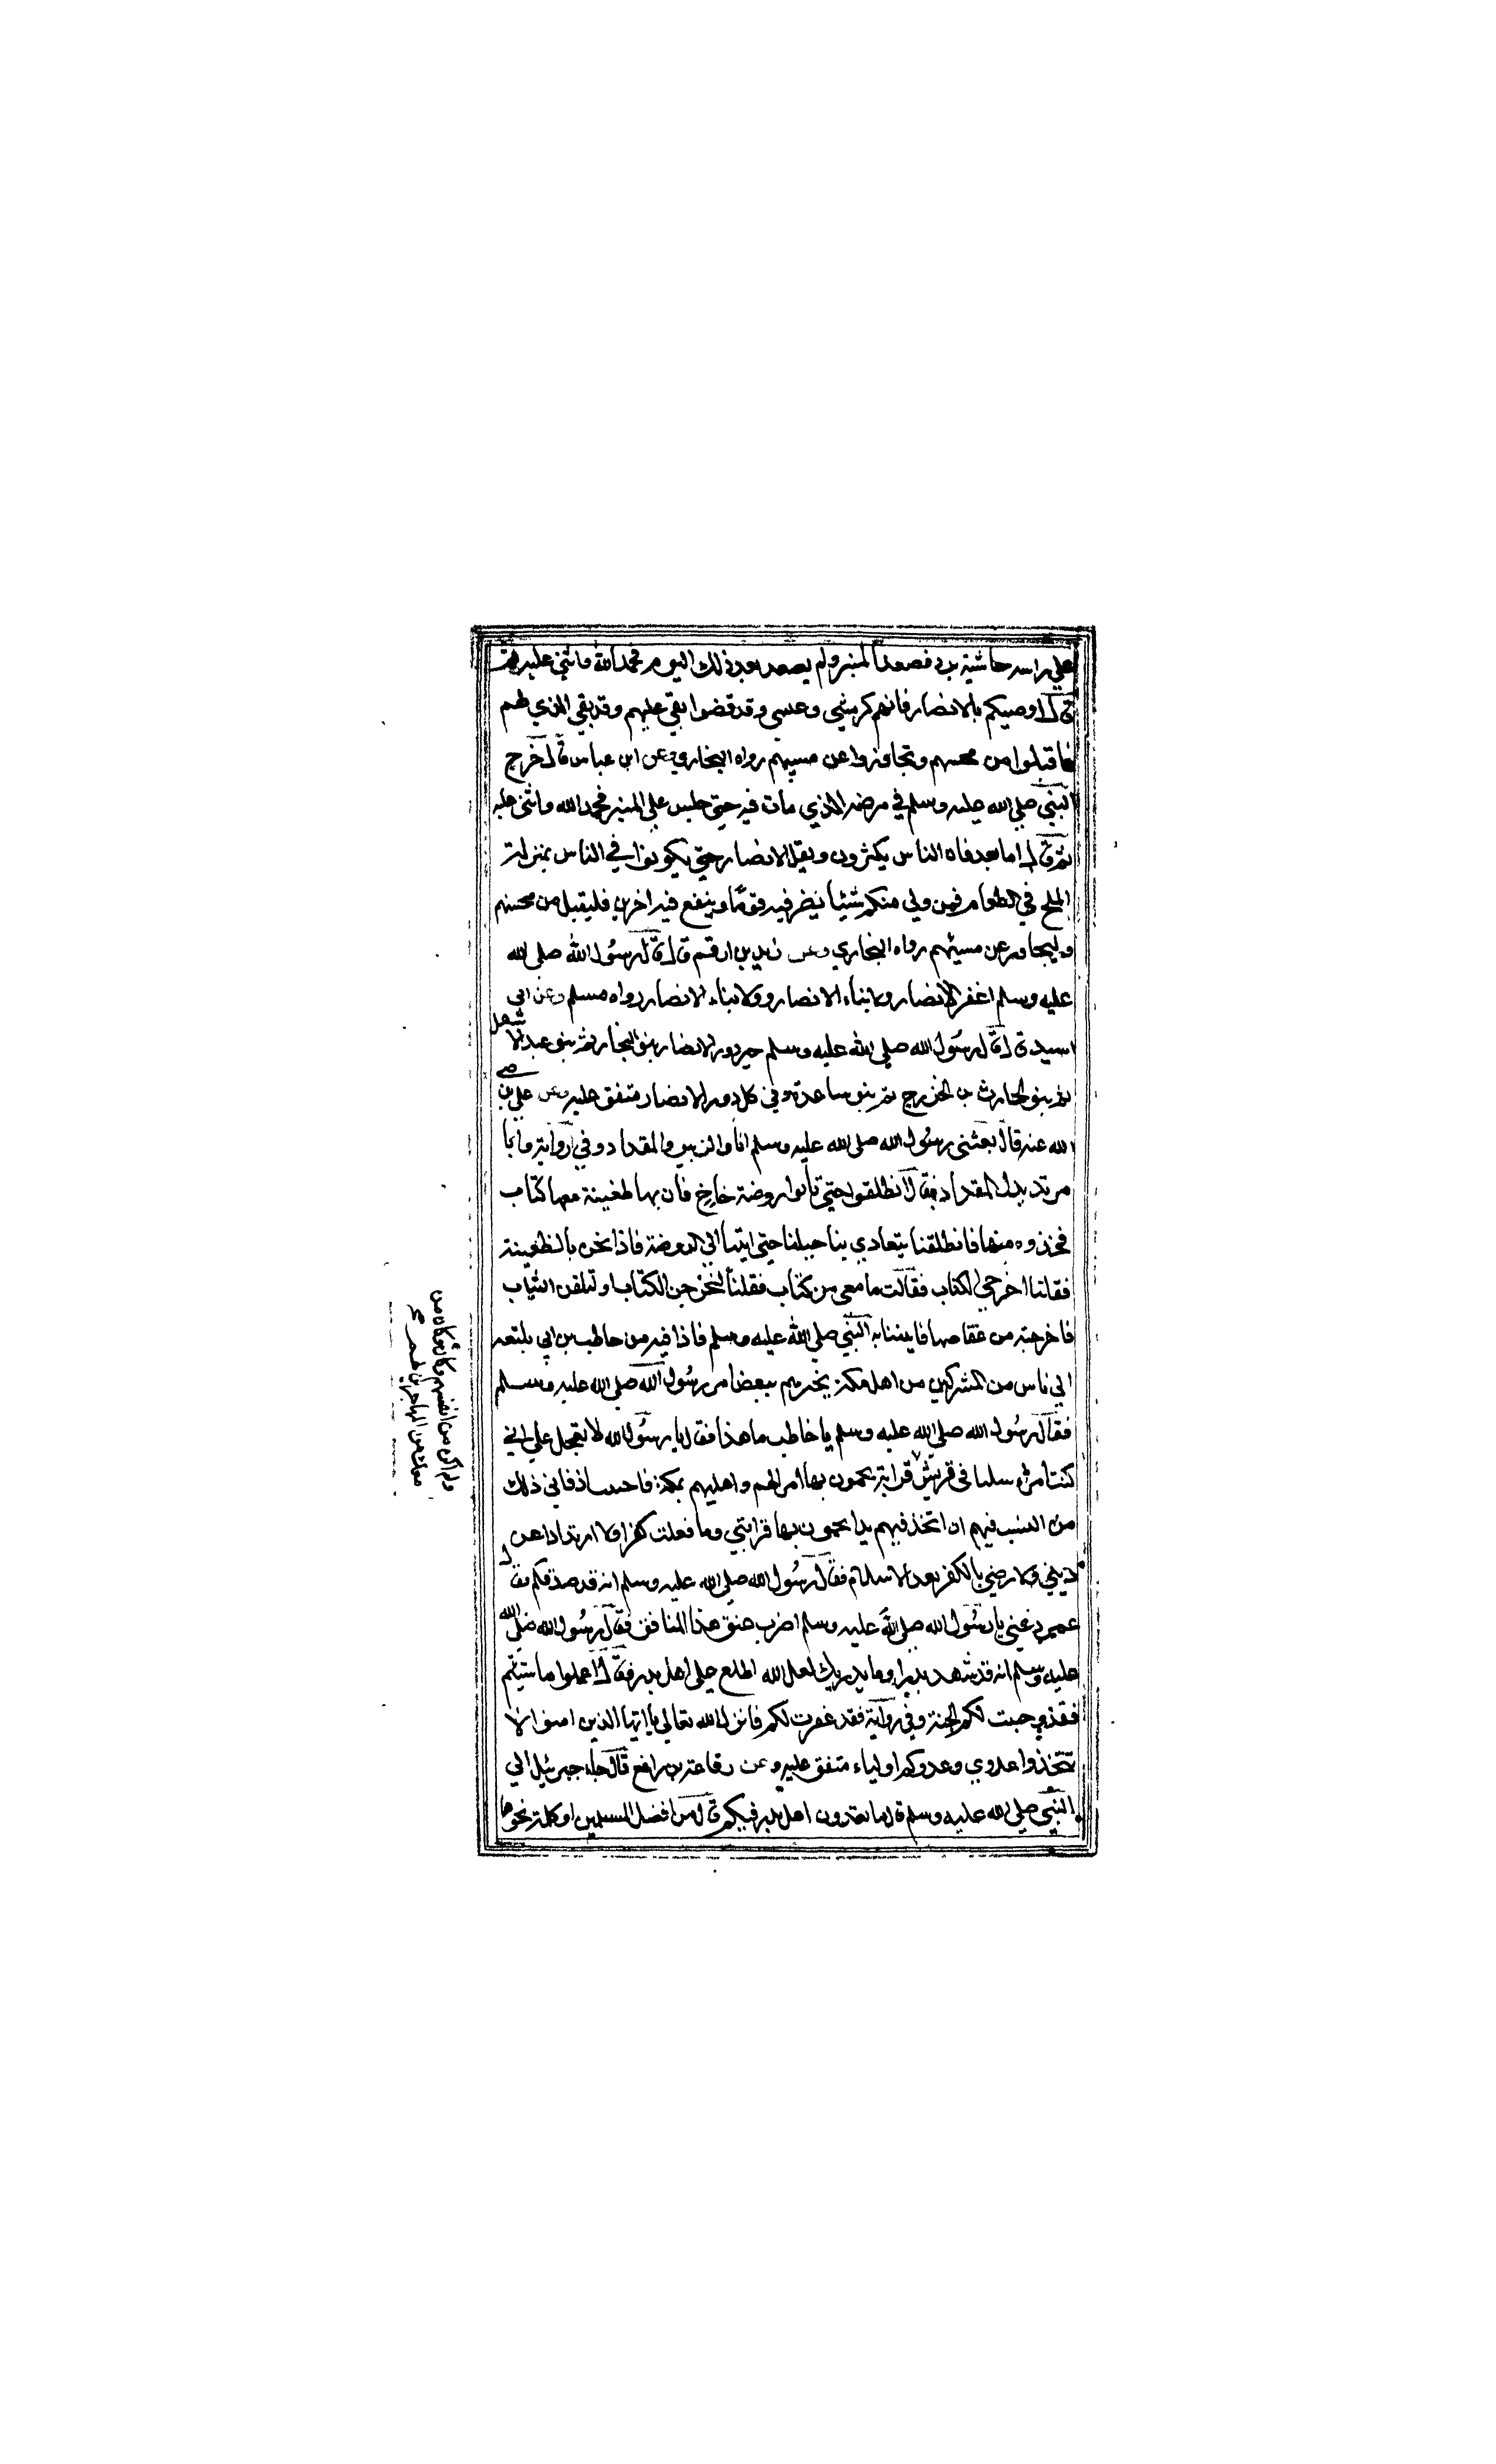 علي راسه حاشية برد فصعد المنبر ولم يصعد بعد ذلك اليوم فحمد الله واثني عليه ثم
قال اوصيكم بالانصار فانهم كرشي وعيبتي وقد قضوا بقي عليهم وقد بقي الذي لهم
فاقبلوا من محسنهم وتجاوزوا عن مسيئهم رواه البخاري وعن ابن عباس قال خرج
النبي صلي الله عليه وسلم في مرضه الذي مات فيه حتي جلس علي المنبر فحمد الله واثني عليه
ثم قال اما بعد فان الناس يكثرون ويقل الانصار حتي يكونوا في الناس بمنزلة
الملح في الطعام فمن ولي منكم شيئا يضر فيه قوما وينفع فيه اخرين فليقبل من محسنهم
وليتجاوز عن مسيئهم رواه البخاري وعن زيد بن ارقم قال قال رسول الله صلي الله
عليه وسلم اغفر للانصار ولابناء الانصار ولابناء الانصار رواه مسلم وعن ابي
اسيد قال قال رسول الله صلي الله عليه وسلم خير دور الانصار بنو النجار ثم بنو عبد الاشهل
ثم بنو الحارث بن الخزرج ثم بنو ساعدة وفي كل دور الانصار متفق عليه وعن علي رضي
الله عنه قال بعثني رسول الله صلي الله عليه وسلم انا والزبير والمقداد وفي رواية وابا
مرثد بدل المقداد فقال انطلقوا حتي تاتوا روضة خاخ فان بها ظعينة معها كتاب
فخذوه منها فانطلقنا يتعادي بنا خيلنا حتي اتينا الي الروضة فاذا نحن بالظعينة
فقلنا اخرجي الكتاب فقالت ما معي من كتاب فقلنا لتخرجن الكتاب او لتلقن الثياب
فاخرجته من عقاصها فاتيننا به النبي صلي الله عليه وسلم فاذا فيه من حاطب بن ابي بلتعه
الي ناس من المشركين من اهل مكة يخبرهم ببعض امر رسول الله صلي الله عليه وسلم
فقال رسول الله صلي الله عليه وسلم يا خاطب ما هذا فقال يا رسول الله لا تعجل علي اني
كنت امرء ملصقا في قريش قرابة يحمون بها اموالهم واهليهم بمكة فاحببت اذ فاتني ذلك
من النسب فيهم ان اتخذ فيهم يدا يحمون بها قرابتي وما فعلت كفرا ولا ارتدادا عن
ديني ولا رضي بالكفر بعد الاسلام فقال رسول الله صلي الله عليه وسلم انه قد صدقكم فقال
عمر دعني يا رسول الله صلي الله عليه وسلم اضرب عنق هذا المنافق فقال رسول الله صلي الله
عليه وسلم انه قد شهد بدرا وما يدريك لعل الله اطلع علي اهل بدر فقال اعملوا ما شيئتم
فقد وجبت لكم الجنة وفي رواية فقد غفرت لكم فانزل الله تعالي يا ايها الذين امنوا لا
تتخذوا عدوي وعدوكم اولياء متفق عليه وعن رفاعة بن رافع قال جاء جبرئيل الي
النبي صلي الله عليه وسلم قال ما تعدون اهل بدر فيكم قال من افضل المسلمين او كلمة نحوها
ولم اكن من انفسهم وكان من
معك من المهاجرين لهم